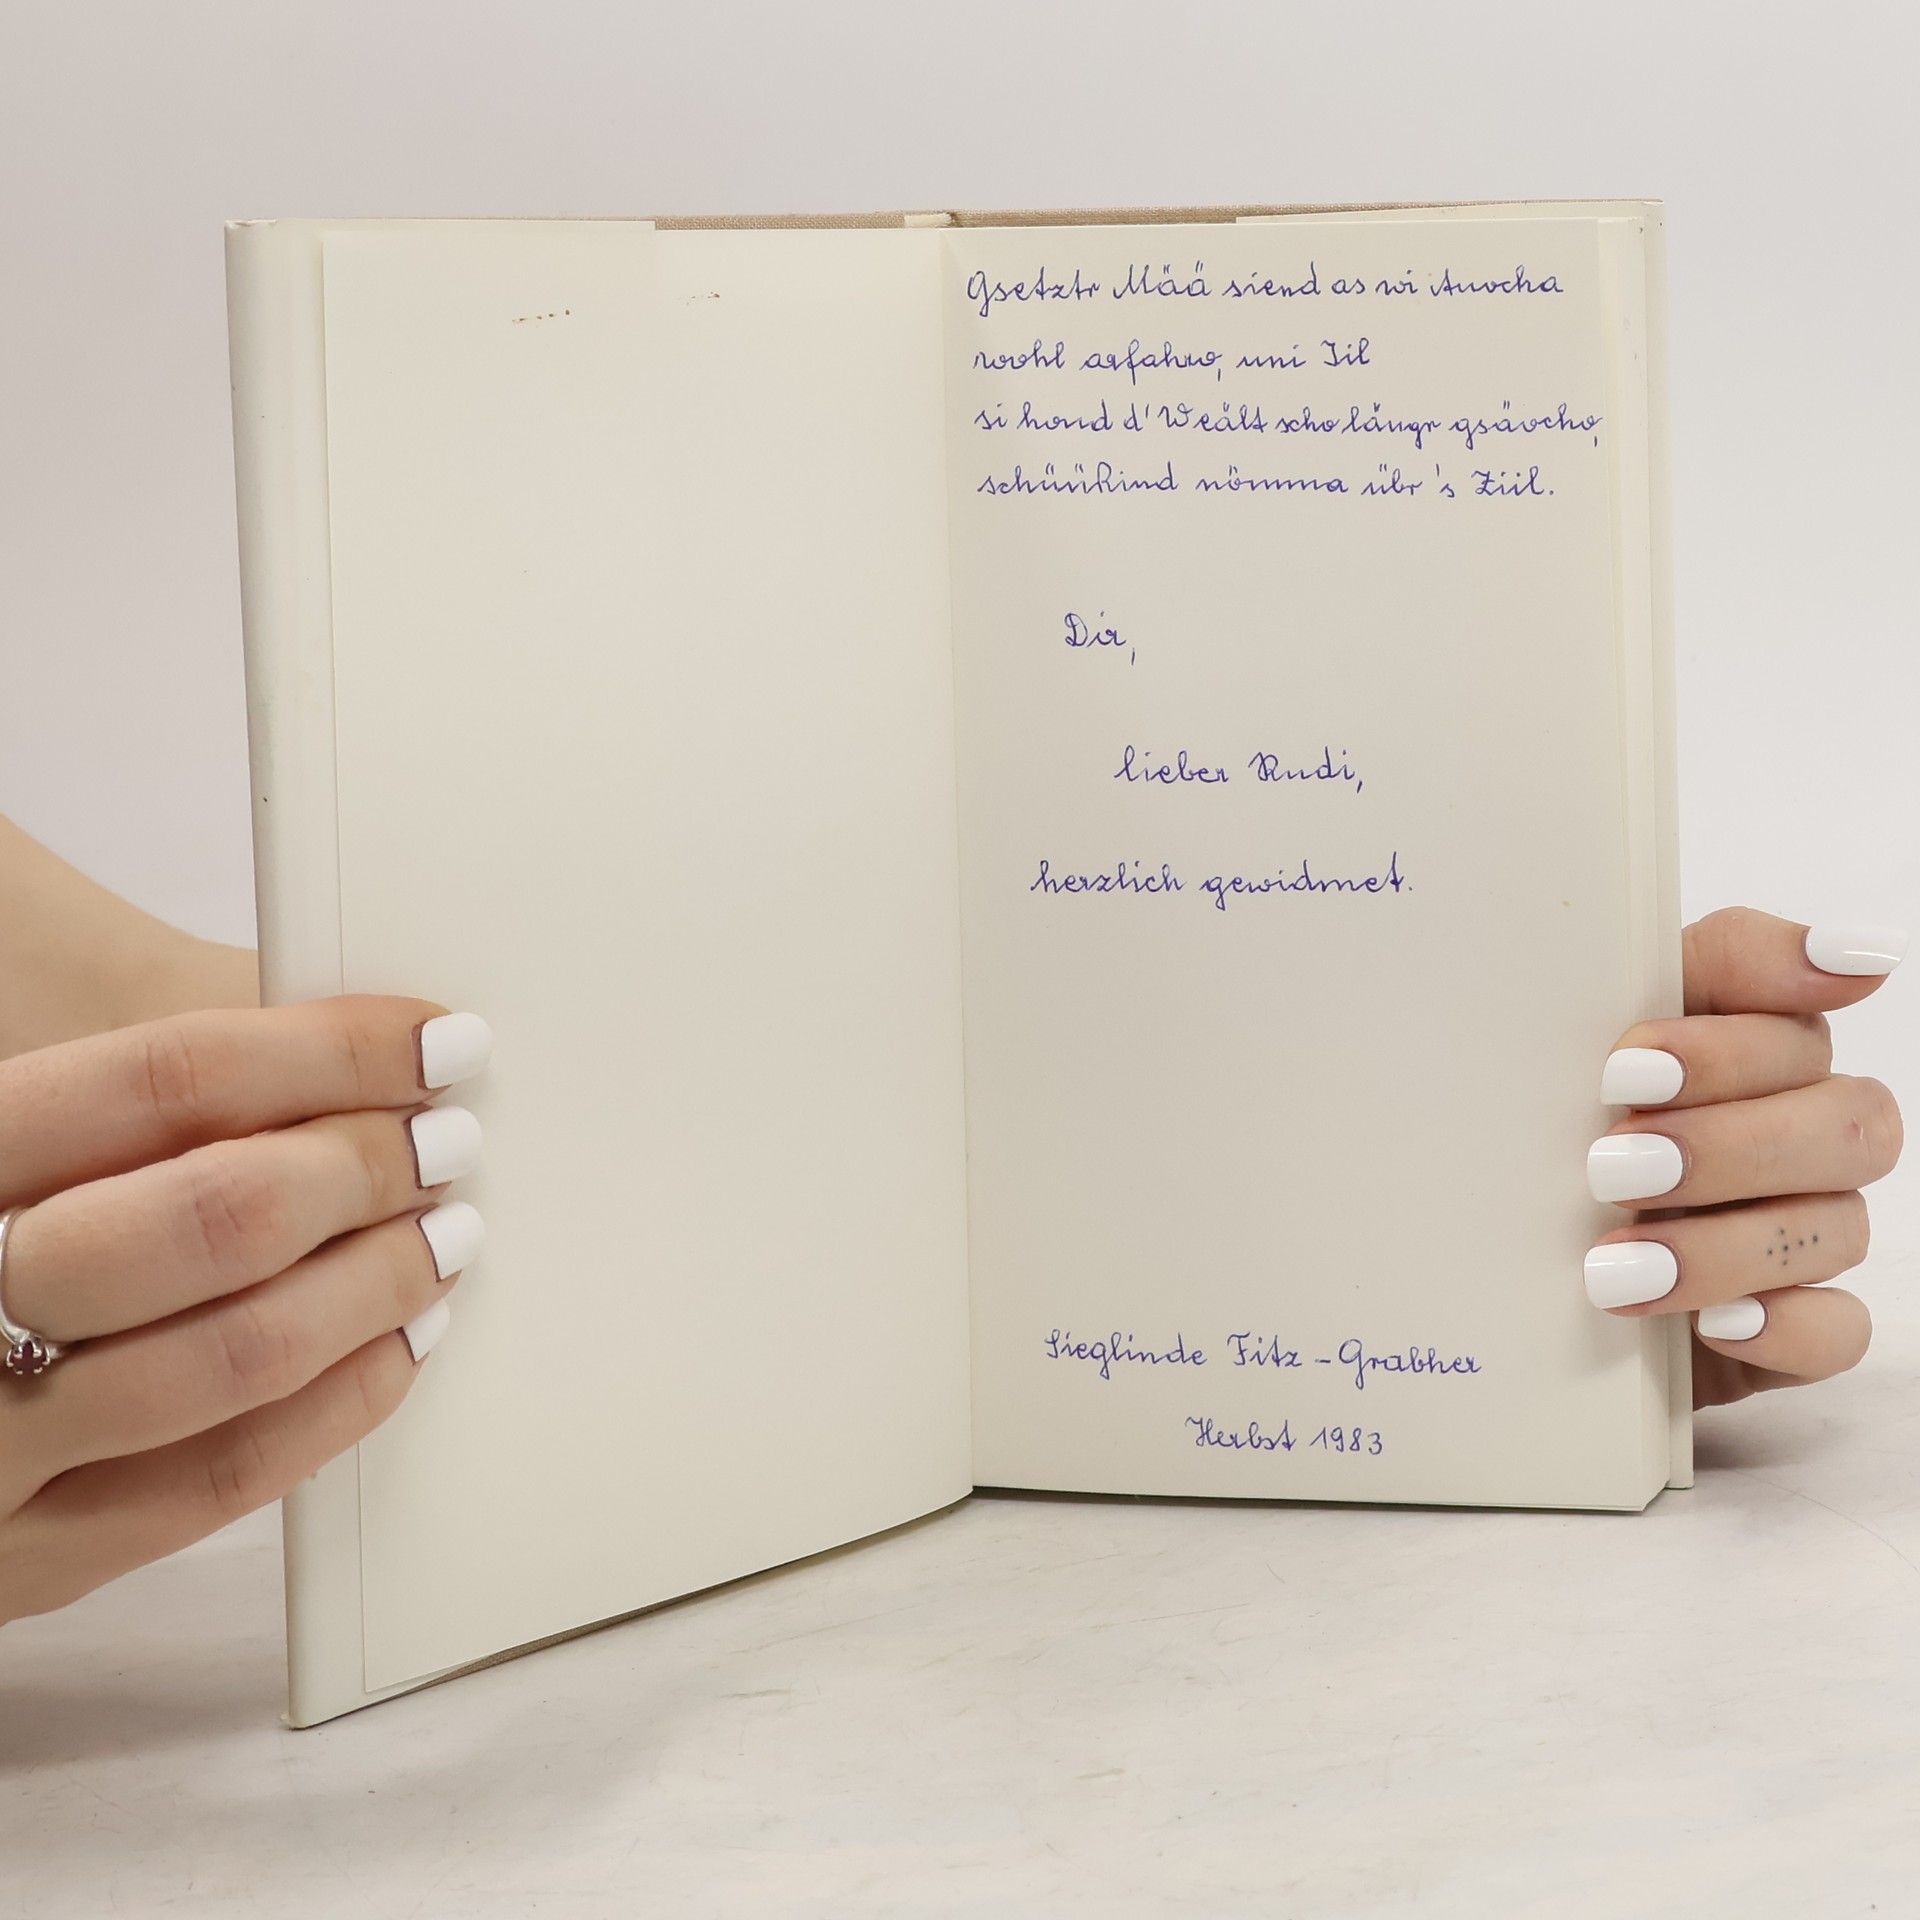 Gsetztr Määä siend as wi Auocha
wohl arfahro, uni Iil
si hond d'Weält scho längr gsäocho,
schüükind nömma übr 's Ziil.
Dir,
lieber Rudi,
herzlich gewidmet.
Sieglinde Fitz-Grabher
Herbst 1983